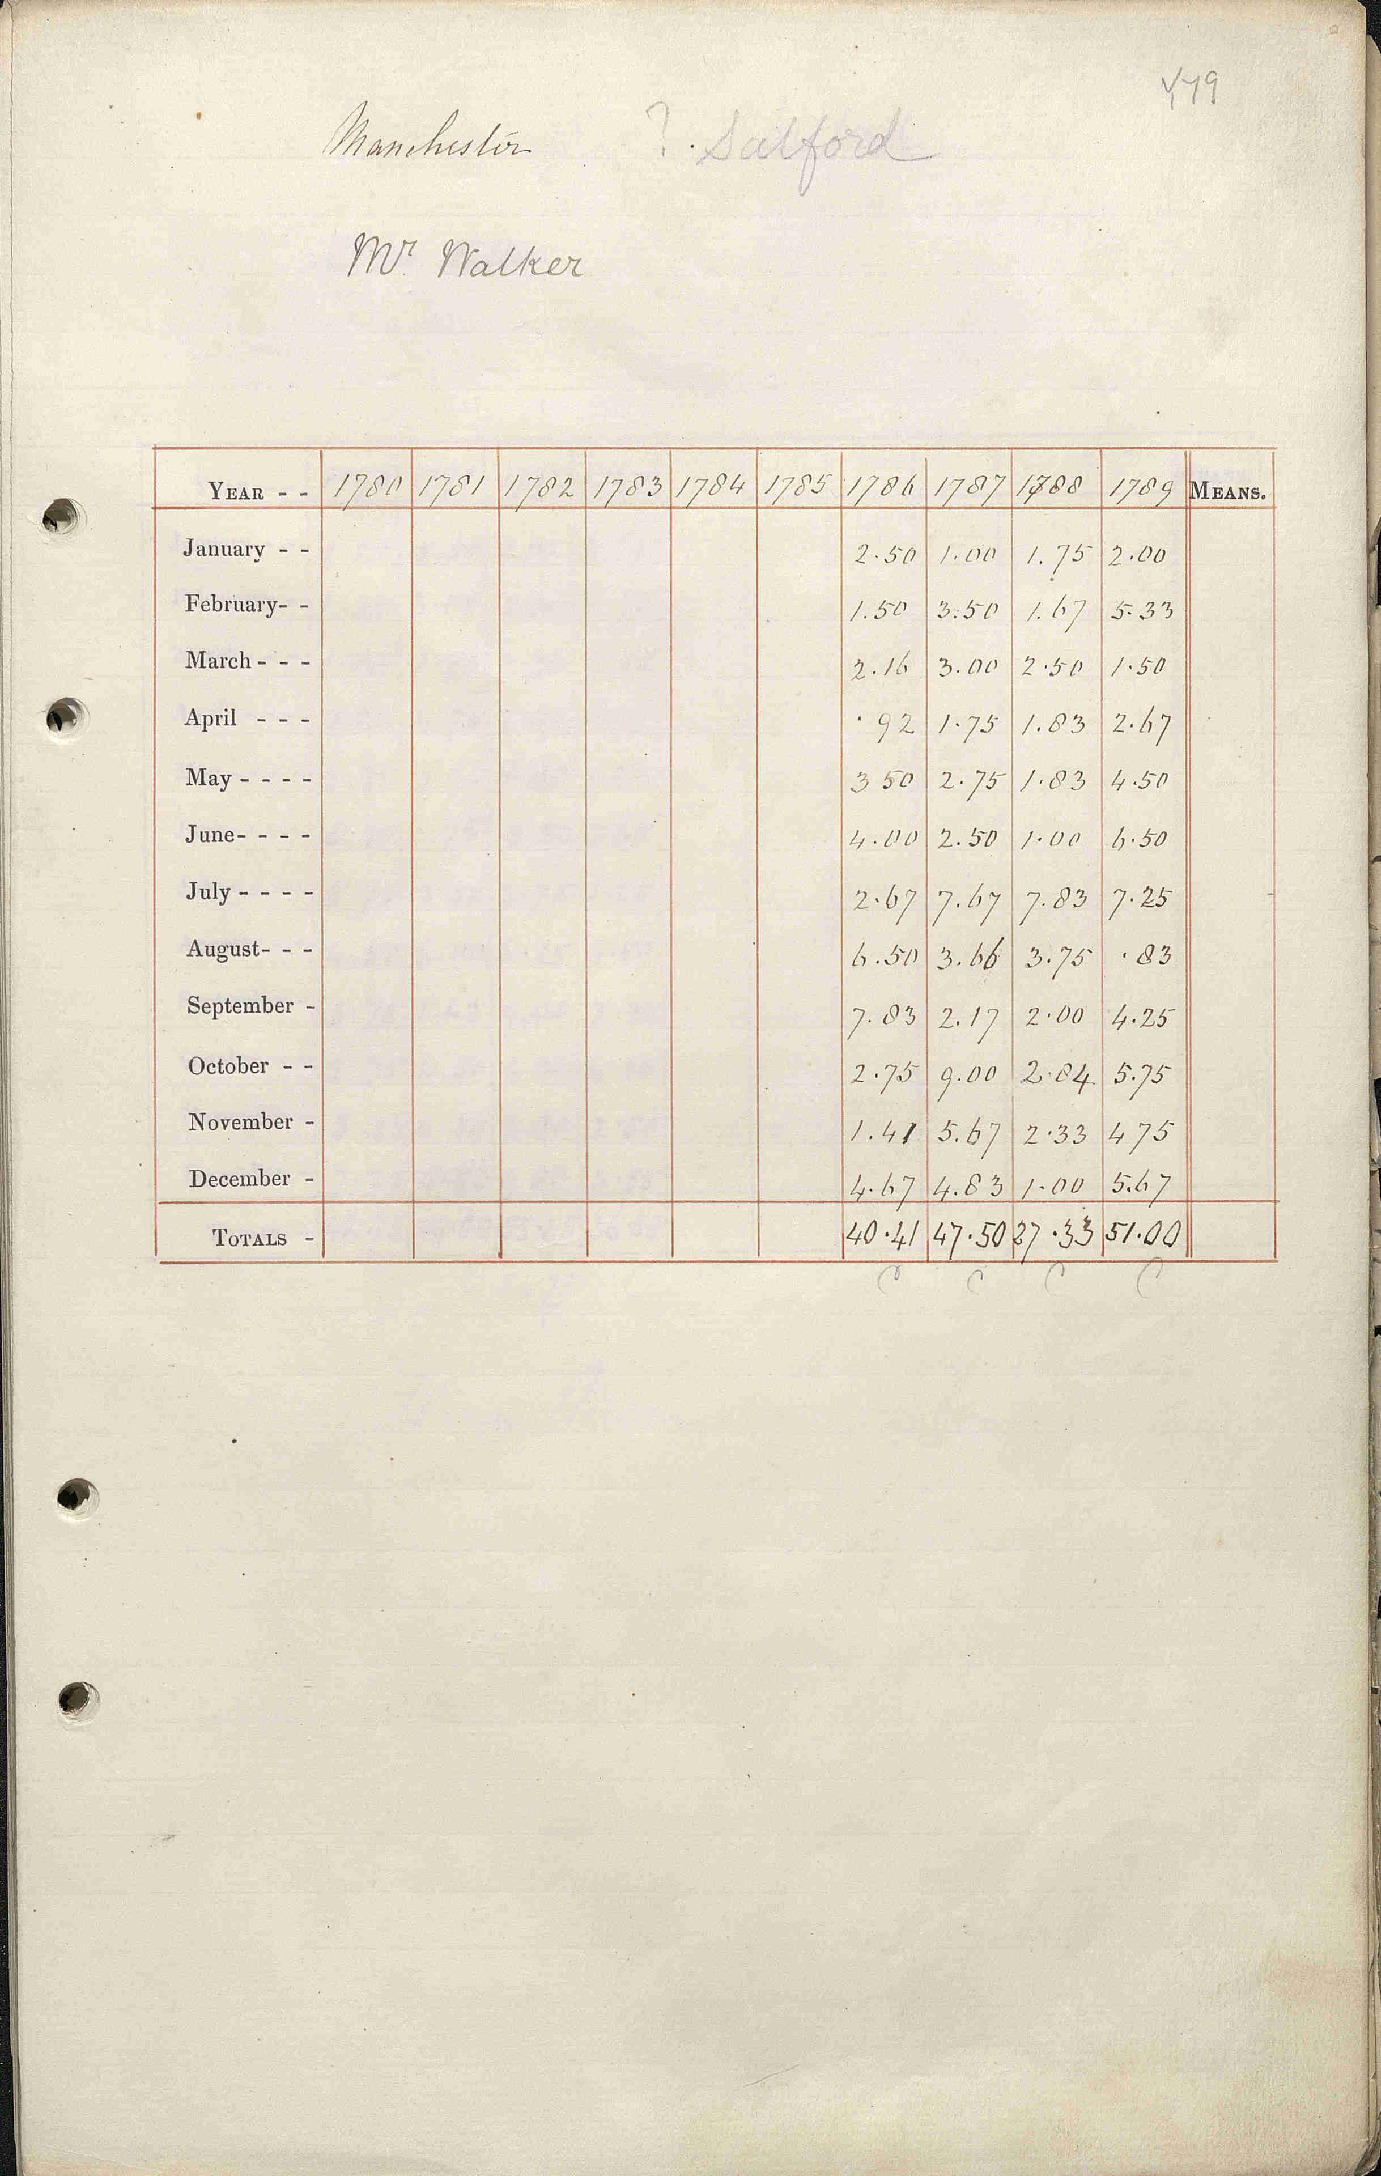 Manchester ? Salford
Mr. Walker
YEAR - - 1780 1781 1782 1783 1784 1785 1786 1787 1788 1789 MEANS.
January - - 2.50 1.00 1.75 2.00
February- - 1.50 3.50 1.67 5.33
March - - - 2.16 3.00 2.50 1.50
April - - - .92 1.75 1.83 2.67
May - - - - 3 50 2.75 1.83 4.50
June- - - - 4.00 2.50 1.00 6.50
July - - - - 2.67 7.67 7.83 7.25
August- - - 6.50 3.66 3.75 .83
September - 7.83 2.17 2.00 4.25
October - - 2.75 9.00 2.84 5.75
November - 1.41 5.67 2.33 4 75
December - 4.67 4.83 1.00 5.67
TOTALS - 40.41 47.50 27.33 51.00